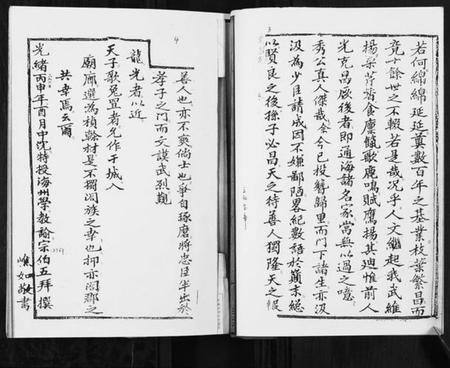 3
若何綿綿延延莫數百年之基業枝葉繁昌而
竟十餘世之不報若是哉况乎人文繼起我武維
揚采芹食廩歌鹿鳴賦鷹揚其廸惟前人
光克昌厥後者即通海諸名家當無以過之噫
秀公真人傑哉余今已投簪歸里而門下諸生亦汲
汲為少臣請成因不嫌鄙陋畧紀數語於巔末總
以賢良之後孫子必昌天之待善人獨隆天之報
4
善人也亦不爽倘士也爭自琢磨將忠臣半出於
孝子之門而文謨武烈觀
龍光者以近
天子歌兔罝者允作干城入
廟廊選為楨榦材是不獨闔族之榮也抑亦闔郡之
共幸焉云爾
光緒丙申年酉月中沈特授海州學教諭宗伯五拜撰
敬書